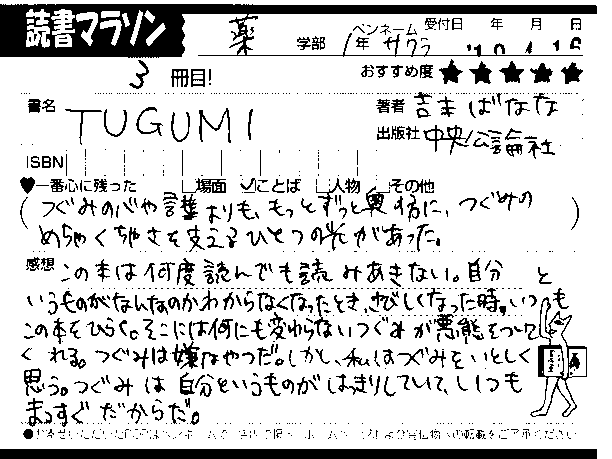 読書マラソン
薬 学部 1年 ペンネーム サクラ 受付日 年 月 日 '10 4 16
3 冊目! おすすめ度 ★★★★★
書名 TUGUMI 著者 吉本ばなな
出版社 中央公論社
ISBN
♥一番心に残った □場面 ☑ことば □人物 □その他
(つぐみの心や誰よりも、もっとずっと奥の方に、つぐみの
めちゃくちゃさを支えるひとつの光があった。)
感想 この本は何度読んでも読みあきない。自分と
いうものがなんなのかわからなくなったとき、さびしくなった時。いつも
この本をひらく。そこには何にも変わらないつぐみが悪態をついて
くれる。つぐみは嫌なやつだ。しかし、私はつぐみをいとしく
思う。つぐみは自分というものがはっきりしていて、いつも
まっすぐだからだ。